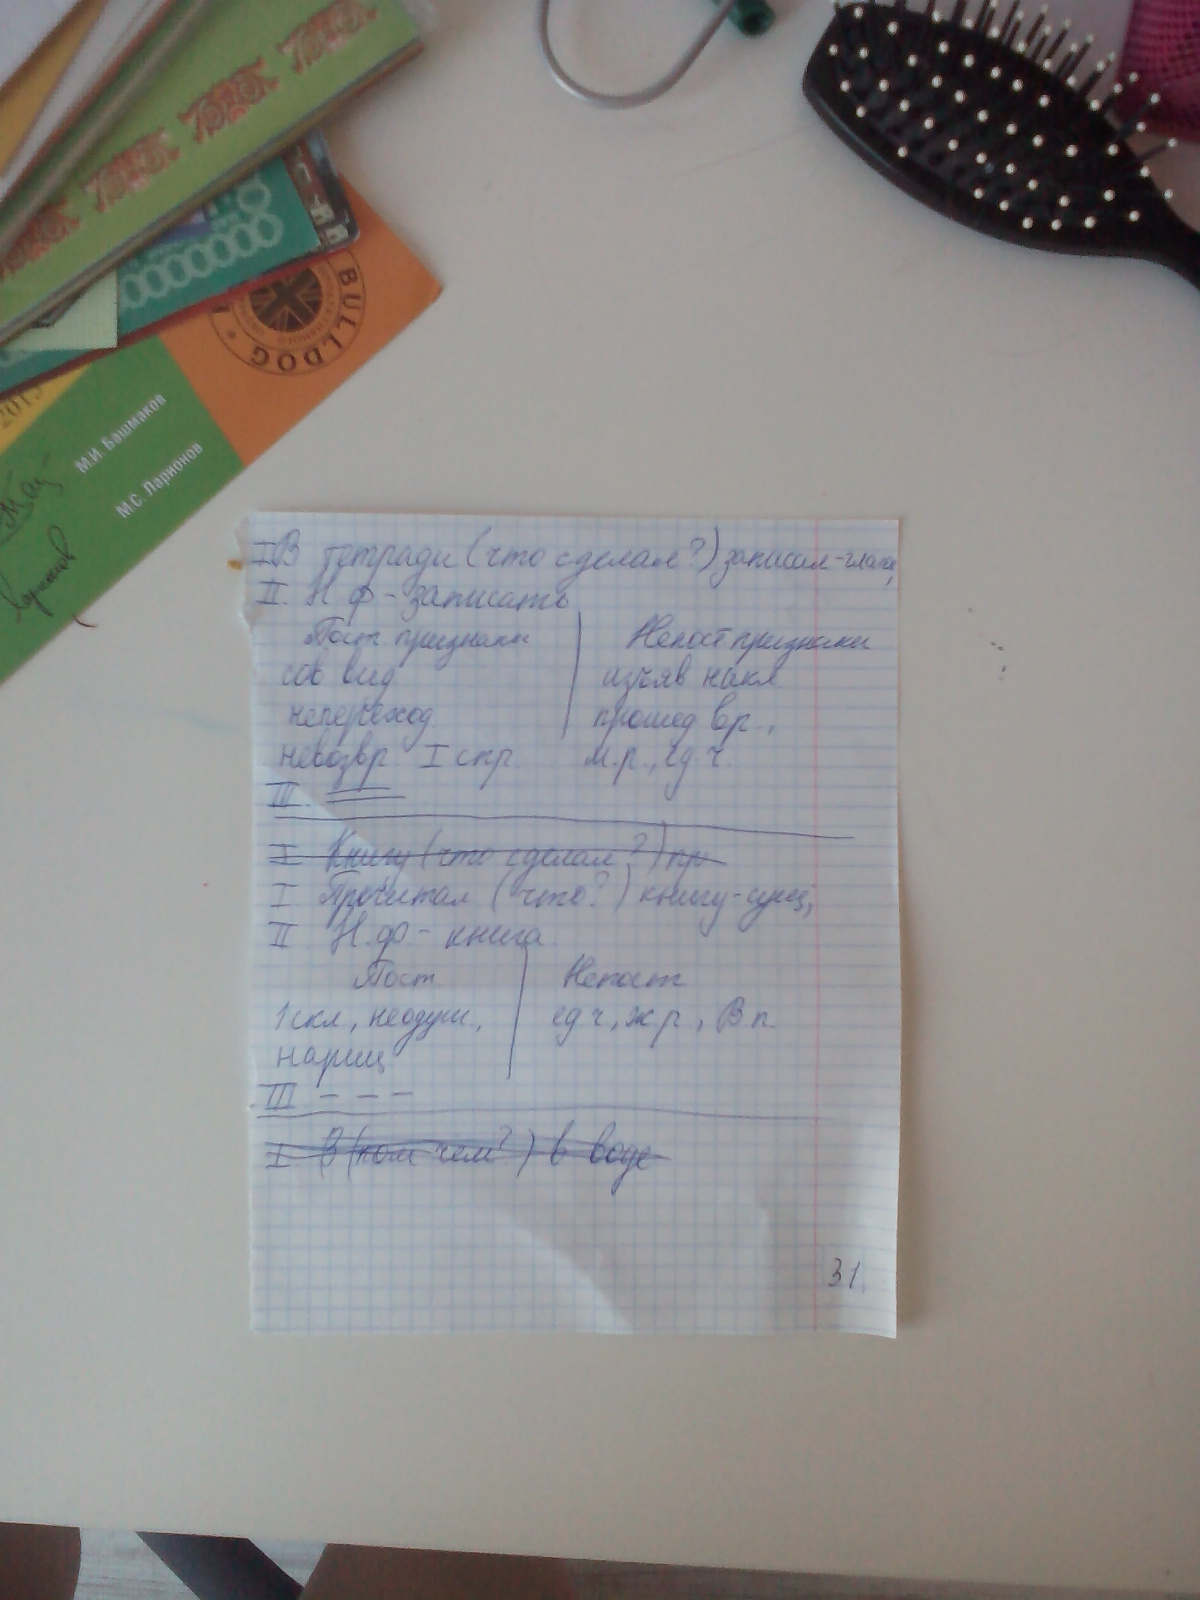 BULLDOG
2013
М.И. Башмаков
М.С. Ларионов
I В тетради (что сделал?) записал-глагол,
II. Н.ф - записать
Пост признаки Непост признаки
сов вид изъяв накл
неперeход прошед вр.,
невозвр I спр. м.р., ед.ч.
III.
I Книгу (что сделал?) пр
I Прочитал (что?) книгу-сущ,
II Н.ф - книга
Пост. Непост
1скл, неодуш., ед ч, ж.р, В.п.
нариц
III - - -
I. В (ком чем?) в воде
31.